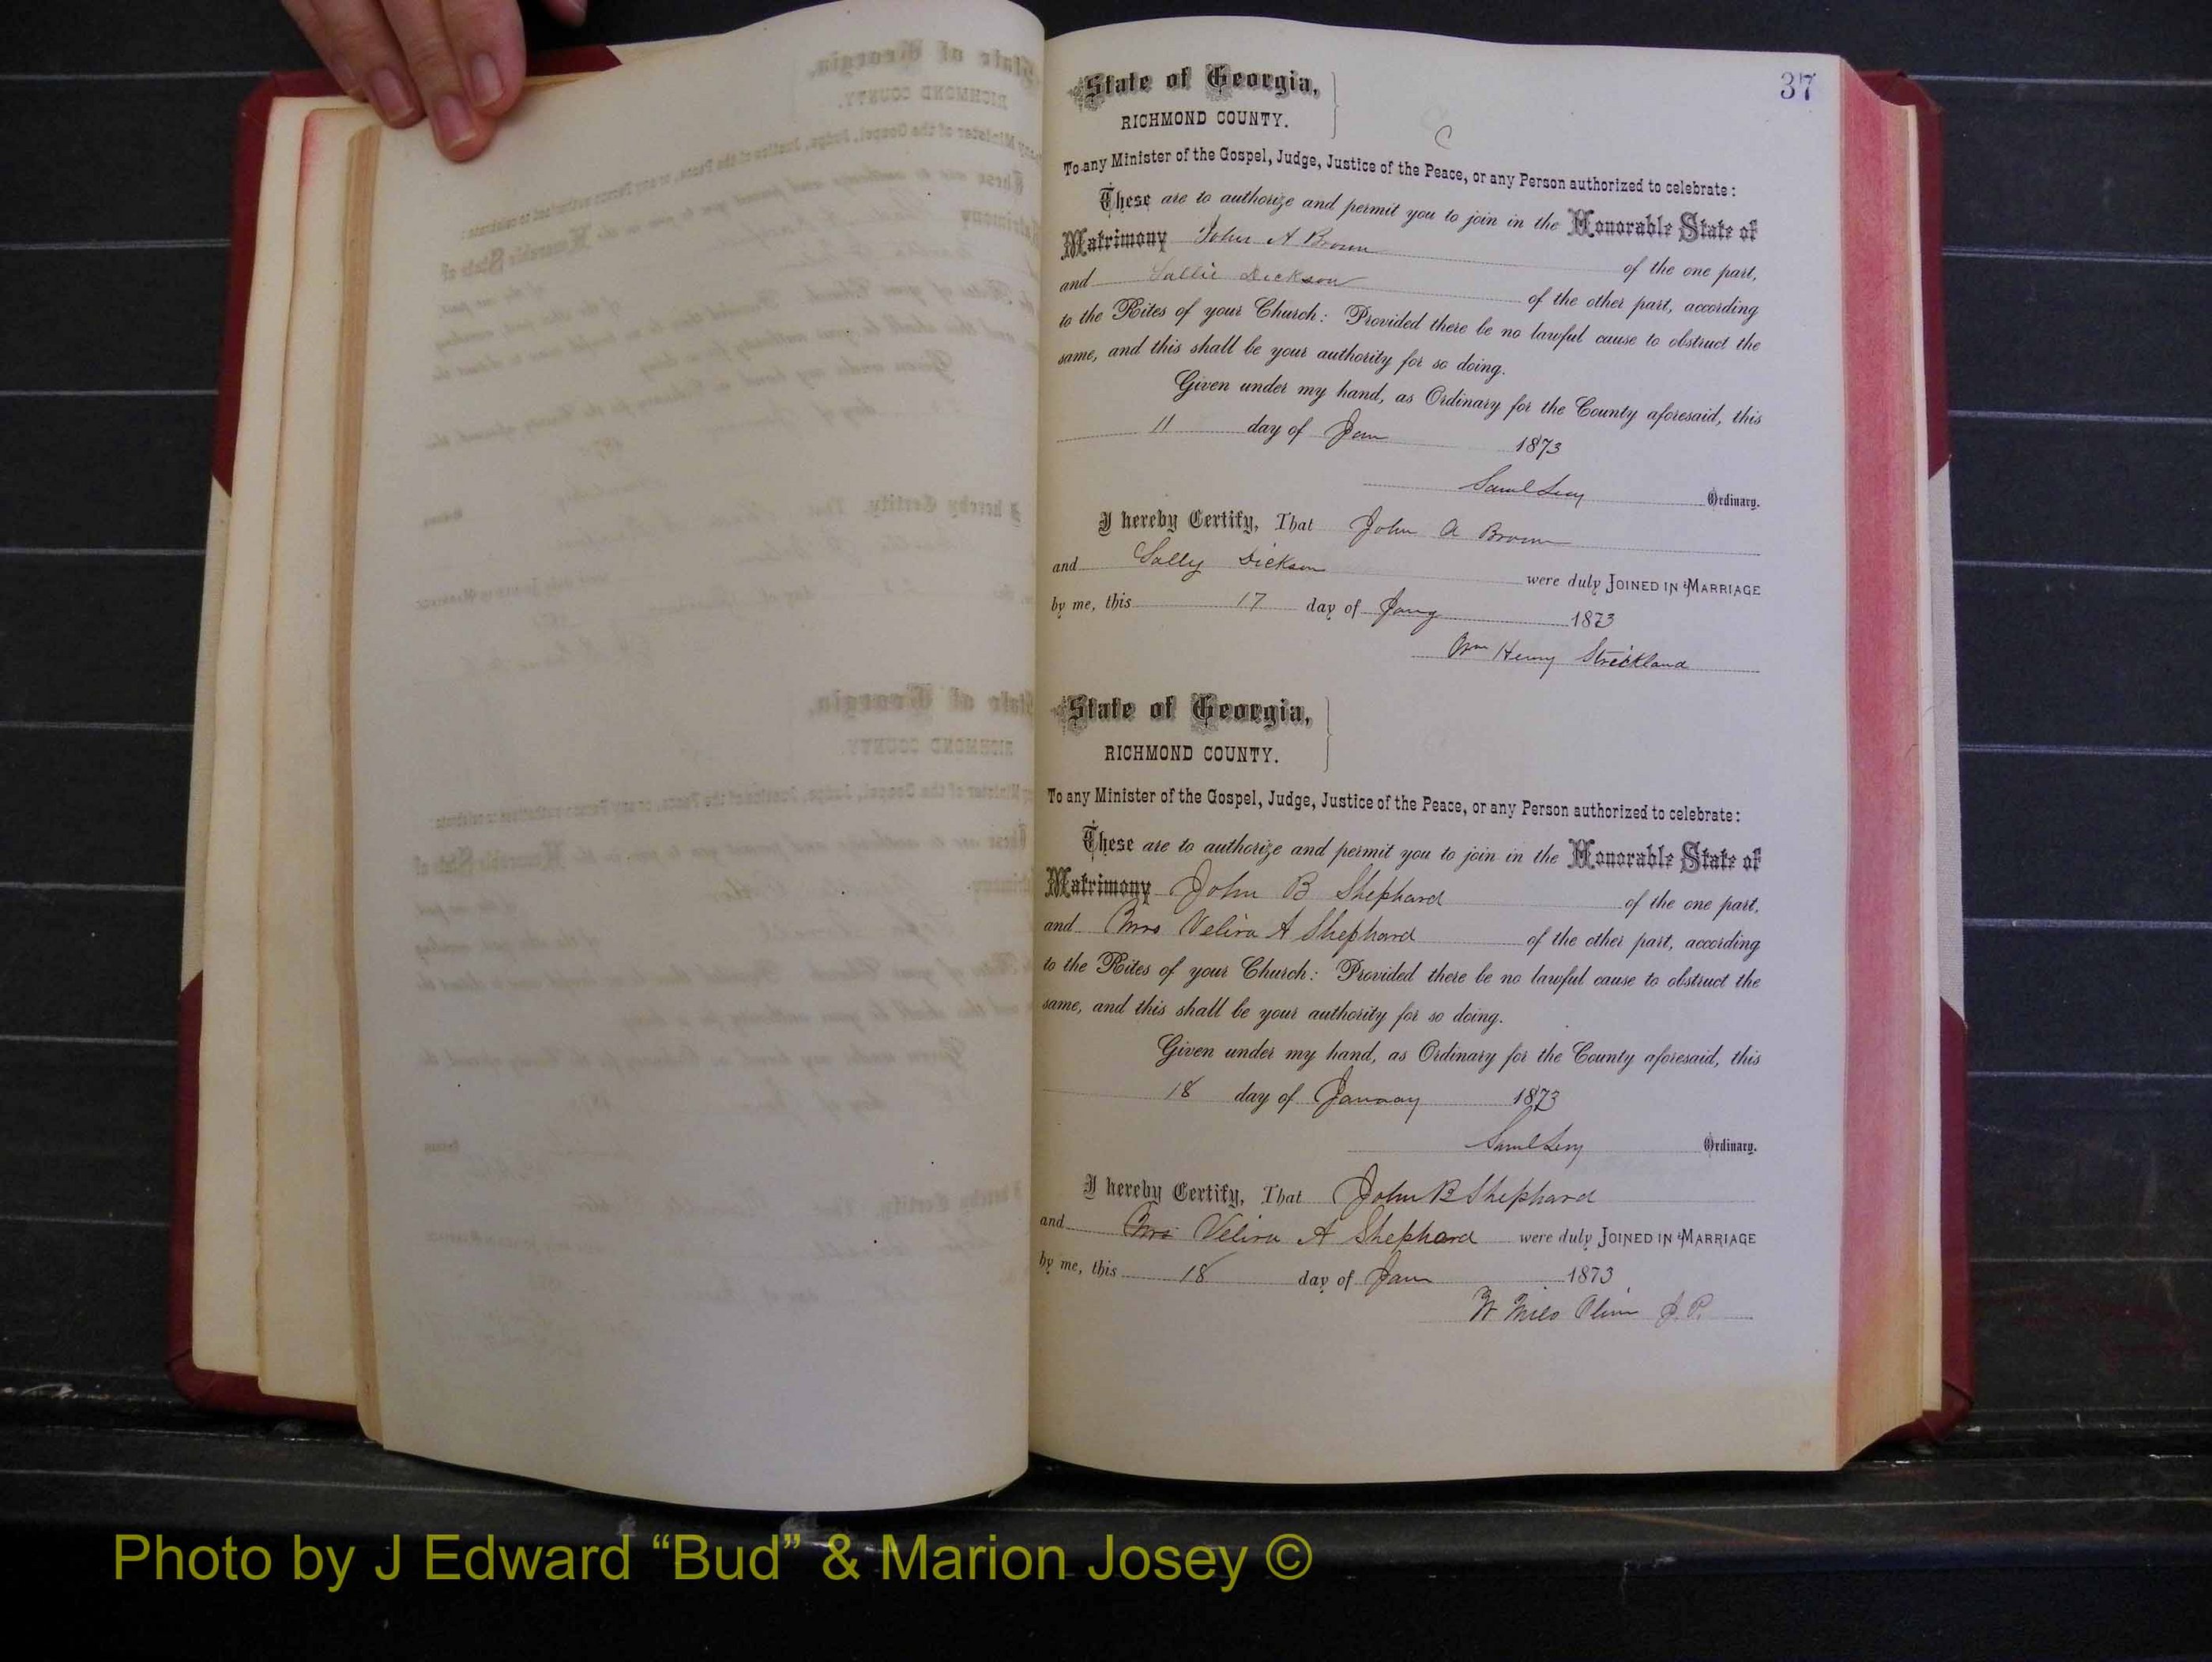 37
State of Georgia,
RICHMOND COUNTY.
C
To any Minister of the Gospel, Judge, Justice of the Peace, or any Person authorized to celebrate:
These are to authorize and permit you to join in the Honorable State of
Matrimony John A Brown of the one part,
and Sallie Dickson of the other part, according
to the Rites of your Church: Provided there be no lawful cause to obstruct the
same, and this shall be your authority for so doing.
Given under my hand, as Ordinary for the County aforesaid, this
11 day of Jan 1873
Saml Levy Ordinary.
I hereby Certify, That John A Brown
and Sally Dickson were duly JOINED IN MARRIAGE
by me, this 17 day of Jany 1873
Wm Henry Strickland
State of Georgia,
RICHMOND COUNTY.
To any Minister of the Gospel, Judge, Justice of the Peace, or any Person authorized to celebrate:
These are to authorize and permit you to join in the Honorable State of
Matrimony John B Shephard of the one part,
and Mrs Velira A Shephard of the other part, according
to the Rites of your Church: Provided there be no lawful cause to obstruct the
same, and this shall be your authority for so doing.
Given under my hand, as Ordinary for the County aforesaid, this
18 day of January 1873
Saml Levy Ordinary.
I hereby Certify, That John B Shephard
and Mrs Velira A Shephard were duly JOINED IN MARRIAGE
by me, this 18 day of Jan 1873
W Milo Olin J.P.
Photo by J Edward “Bud” & Marion Josey ©